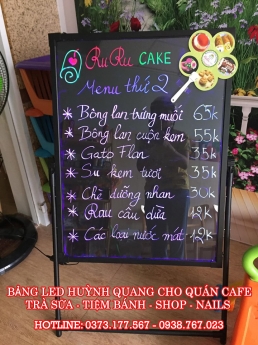 RuRu CAKE
Menu thứ 2
* Bông lan trứng muối 65k
* Bông lan cuộn kem 55k
* Gato Flan 35k
* Su kem tươi 35k
* Chè dưỡng nhan 30k
* Rau câu dừa 18k
* Các loại nước mát 12k
BẢNG LED HUỲNH QUANG CHO QUÁN CAFE
TRÀ SỮA - TIỆM BÁNH - SHOP - NAILS
HOTLINE: 0373.177.567 - 0938.767.023